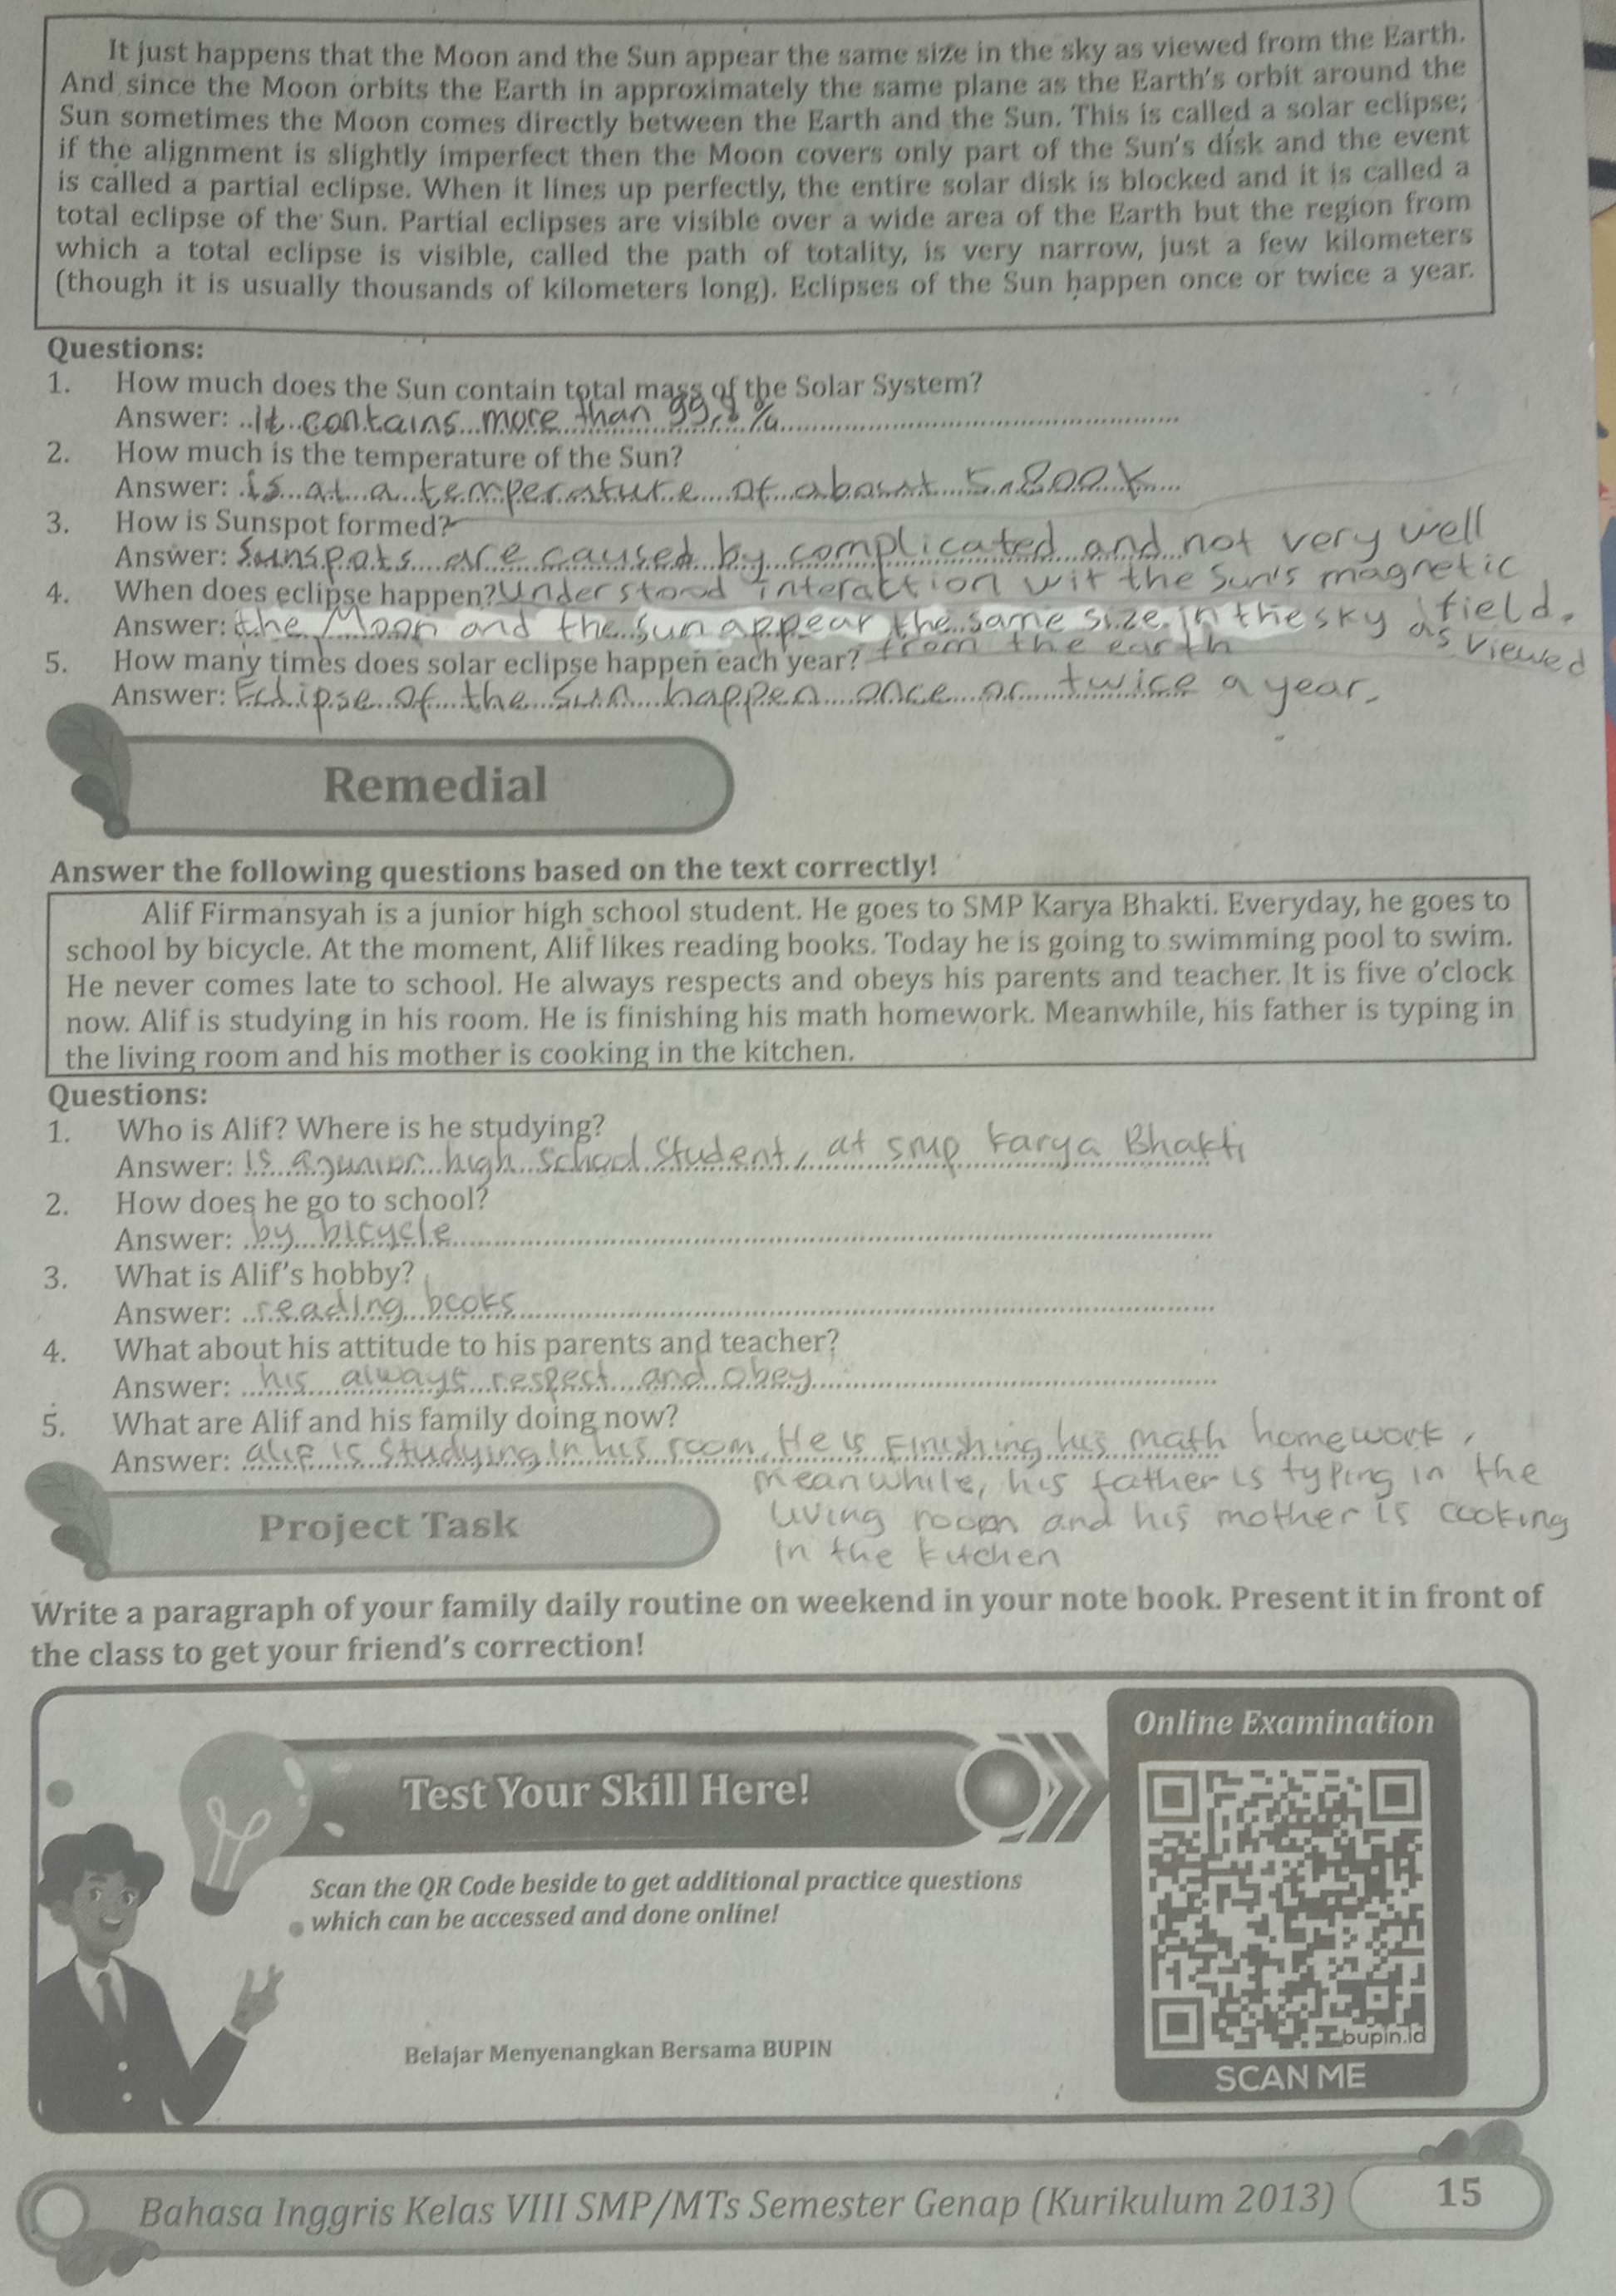 It just happens that the Moon and the Sun appear the same size in the sky as viewed from the Earth.
And since the Moon orbits the Earth in approximately the same plane as the Earth's orbit around the
Sun sometimes the Moon comes directly between the Earth and the Sun. This is called a solar eclipse;
if the alignment is slightly imperfect then the Moon covers only part of the Sun's disk and the event
is called a partial eclipse. When it lines up perfectly, the entire solar disk is blocked and it is called a
total eclipse of the Sun. Partial eclipses are visible over a wide area of the Earth but the region from
which a total eclipse is visible, called the path of totality, is very narrow, just a few kilometers
(though it is usually thousands of kilometers long). Eclipses of the Sun happen once or twice a year.
Questions:
1. How much does the Sun contain total mass of the Solar System?
Answer: It contains more than 99,8 %
2. How much is the temperature of the Sun?
Answer: is at a temperature of about 5.800 K
3. How is Sunspot formed?
Answer: Sunspots are caused by complicated and not very well
understood interaktion wit the Sun's magnetic
field.
4. When does eclipse happen?
Answer: the Moon and the sun appear the same size in the sky as viewed
from the earth
5. How many times does solar eclipse happen each year?
Answer: Eclipse of the sun happen once or twice a year.
Remedial
Answer the following questions based on the text correctly!
Alif Firmansyah is a junior high school student. He goes to SMP Karya Bhakti. Everyday, he goes to
school by bicycle. At the moment, Alif likes reading books. Today he is going to swimming pool to swim.
He never comes late to school. He always respects and obeys his parents and teacher. It is five o'clock
now. Alif is studying in his room. He is finishing his math homework. Meanwhile, his father is typing in
the living room and his mother is cooking in the kitchen.
Questions:
1. Who is Alif? Where is he studying?
Answer: Is a junior high school student, at smp karya Bhakti
2. How does he go to school?
Answer: by bicycle
3. What is Alif's hobby?
Answer: reading books
4. What about his attitude to his parents and teacher?
Answer: his always respect and obey
5. What are Alif and his family doing now?
Answer: alif is studying in his room, He is Finishing his math homework,
meanwhile, his father is typing in the
living room and his mother is cooking
in the kitchen
Project Task
Write a paragraph of your family daily routine on weekend in your note book. Present it in front of
the class to get your friend's correction!
Online Examination
Test Your Skill Here!
Scan the QR Code beside to get additional practice questions
which can be accessed and done online!
Belajar Menyenangkan Bersama BUPIN
bupin.id
SCAN ME
Bahasa Inggris Kelas VIII SMP/MTs Semester Genap (Kurikulum 2013)
15